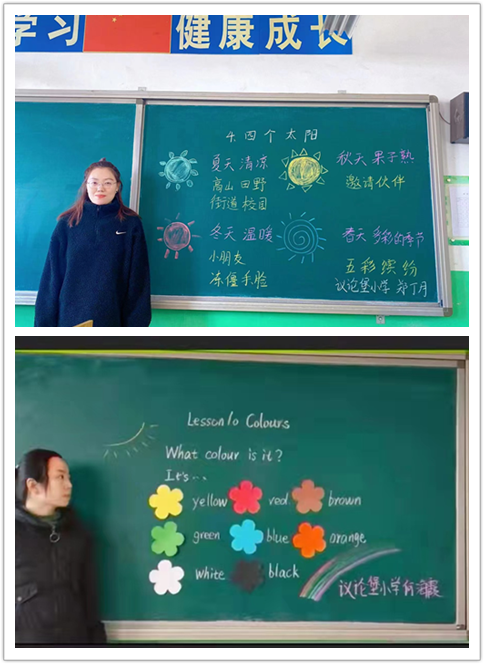 学习
健康成长
4.四个太阳
夏天 清凉
高山 田野
街道 校园
秋天 果子熟
邀请伙伴
冬天 温暖
小朋友
冻僵手脸
春天 多彩的季节
五彩缤纷
议论堡小学 郑丁月
Lesson 10 Colours
What colour is it?
It's...
yellow red brown
green blue orange
white black
议论堡小学